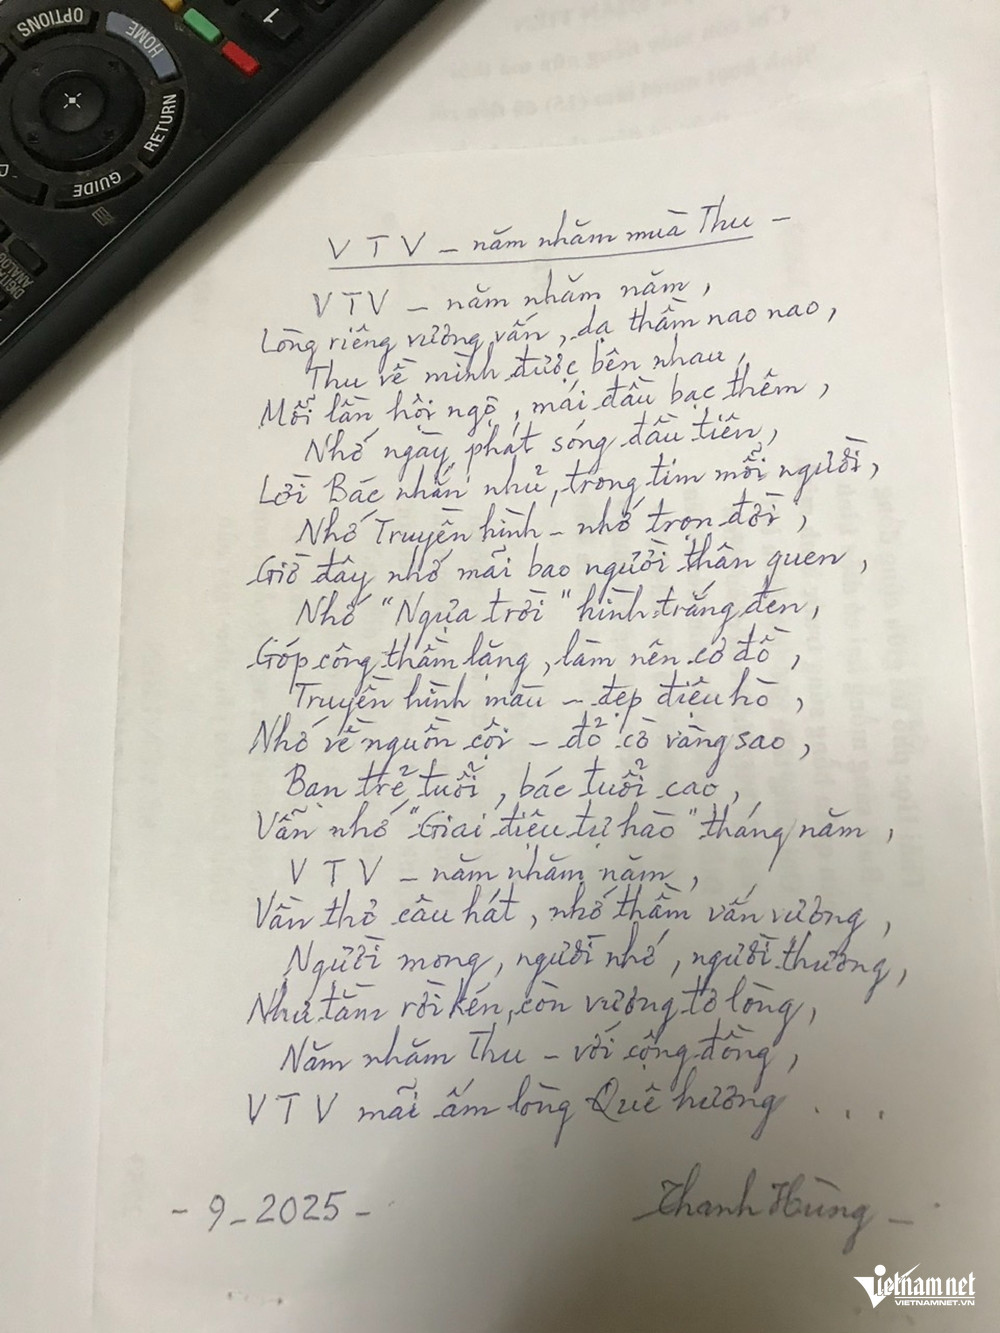 OPTIONS
HOME
RETURN
GUIDE
DIGITAL
ANALOG
1
VTV - năm nhăm mùa Thu -
VTV - năm nhăm năm,
Lòng riêng vương vấn, dạ thầm nao nao,
Thu về mình được bên nhau,
Mỗi lần hội ngộ, mái đầu bạc thêm,
Nhớ ngày phát sóng đầu tiên,
Lời Bác nhắn nhủ, trong tim mỗi người,
Nhớ Truyền hình - nhớ trọn đời,
Giờ đây nhớ mãi bao người thân quen,
Nhớ "Ngựa trời" hình trắng đen,
Góp công thầm lặng, làm nên cơ đồ,
Truyền hình màu - đẹp điệu hò,
Nhớ về nguồn cội - đỏ cờ vàng sao,
Bạn trẻ tuổi, bác tuổi cao,
Vẫn nhớ "Giai điệu tự hào" tháng năm,
VTV - năm nhăm năm,
Vần thơ câu hát, nhớ thầm vấn vương,
Người mong, người nhớ, người thương,
Như tằm rời kén, còn vương tơ lòng,
Năm nhăm Thu - với cộng đồng,
VTV mãi ấm lòng Quê hương ...
- 9 - 2025 -
Thanh Hùng -
Vietnamnet
VIETNAMNET.VN